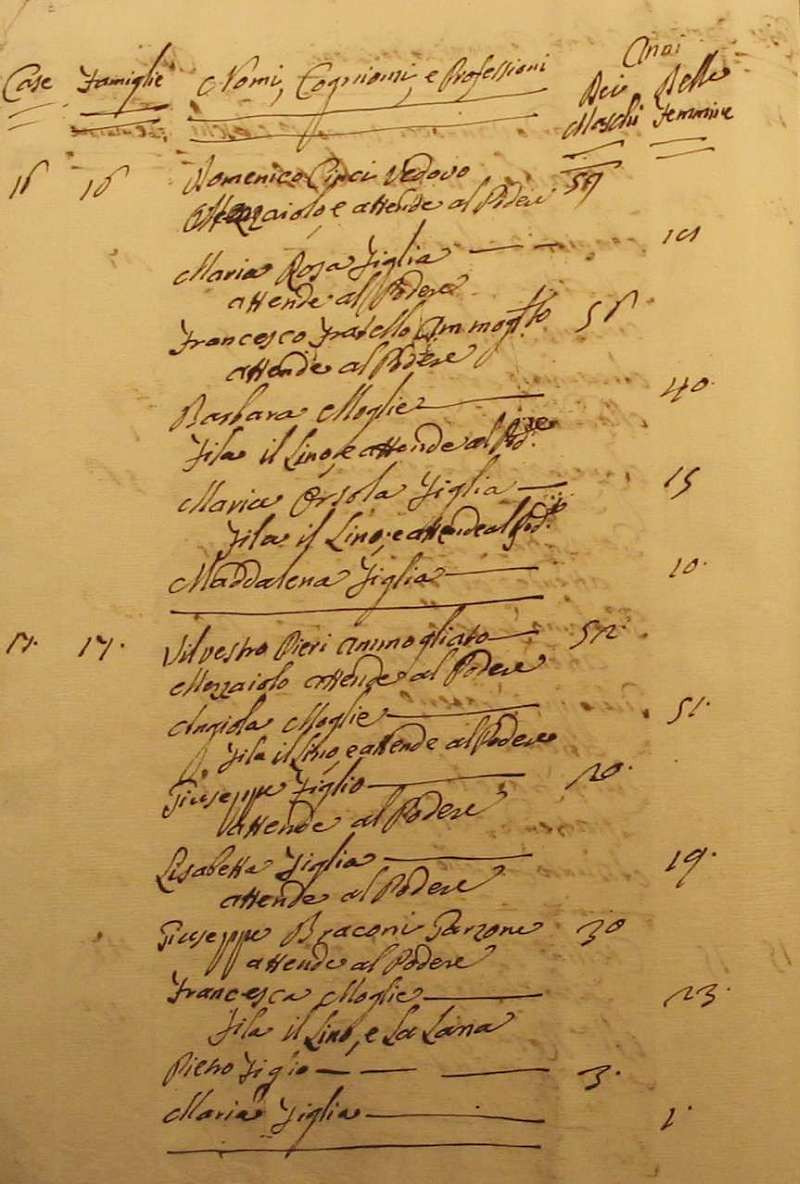 Anni
Case Famiglie Nomi, Cognomi, e Professioni Dei Delle
Maschi Femmine
16 16 Domenico Cinci Vedovo 59
Mezzaiolo, e attende al Podere
Maria Rosa Figlia 101
attende al Podere
Francesco Fratello Ammogto 56
attende al Podere
Barbara Moglie 40.
Fila il Lino, e attende al Podre
Maria Orsola Figlia 15
Fila il Lino, e attende al Pod.
Maddalena Figlia 10.
17. 17. Silvestro Pieri Ammogliato 52.
Mezzaiolo attende al Podere
Angiola Moglie 51.
Fila il Lino, e attende al Podere
Giuseppe Figlio 20.
attende al Podere
Lisabetta Figlia 19.
attende al Podere
Giuseppe Braconi Garzone 30
attende al Podere
Francesca Moglie 23.
Fila il Lino, e La Lana
Pietro Figlio 3.
Maria Figlia 1.